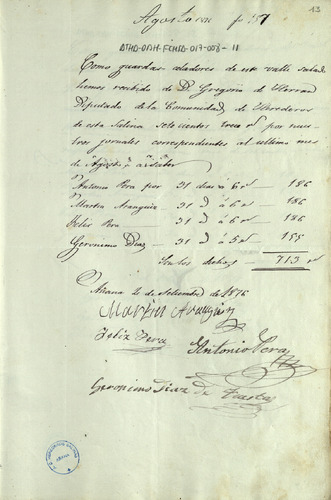 Agosto
13
ATHA-DAH-FCHSB-017-003-11
Como guardas celadores de este valle salado
hemos recibido de D. Gregorio de Herran
Diputado de la Comunidad de Herederos
de esta Salina setecientos trece rs por nues
tros jornales correspondientes al ultimo mes
de Agosto á saber
Antonio Pera por 31 dias á 6 rs — 186
Martin Aranguiz — 31 d á 6 rs — 186
Felix Pera — 31 d á 6 rs — 186
Geronimo Diaz — 31 d á 5 rs — 155
Son los dichos — 713 rs
Añana 2 de Setiembre de 1876
Martin Aranguiz
Felix Pera
Antonio Pera
Geronimo Diaz de